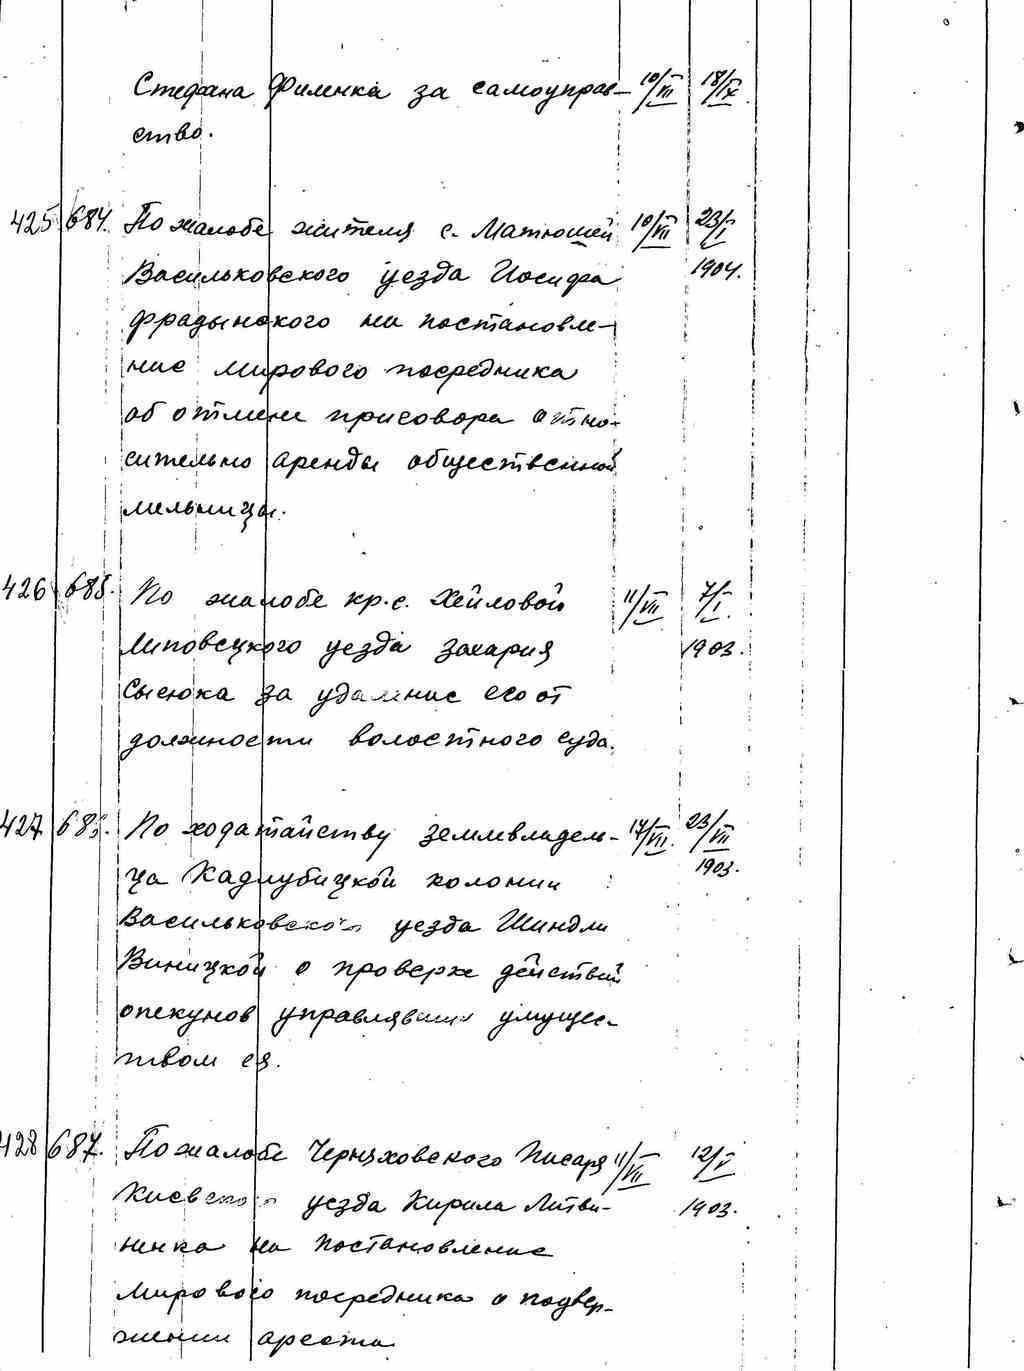 Стефана Филенка за самоуправ- 10/VII 18/IX
ство.
425 684. По жалобе жителя с. Матюшей 10/VII 23/I
Васильковского уезда Иосифа 1904.
Фрадынского на постановле-
ние мирового посредника
об отмене приговора относ-
сительно аренды общественной
мельницы.
426 685. По жалобе кр. с. Хейловой 11/VII 7/I
Липовецкого уезда Захария 1903.
Сысюка за удаление его от
должности волостного суда.
427 686. По ходатайству землевладель- 17/VII. 23/VII
ца Кадлубицкой колонии 1903.
Васильковского уезда Шиндли
Виницкой о проверке действий
опекунов управлявших имущес-
твом ея.
428 687. По жалобе Черняховского Писаря 11/VII 12/V
Киевского уезда Кирила Литви- 1903.
ненка на постановление
мирового посредника о подвер-
жении ареста